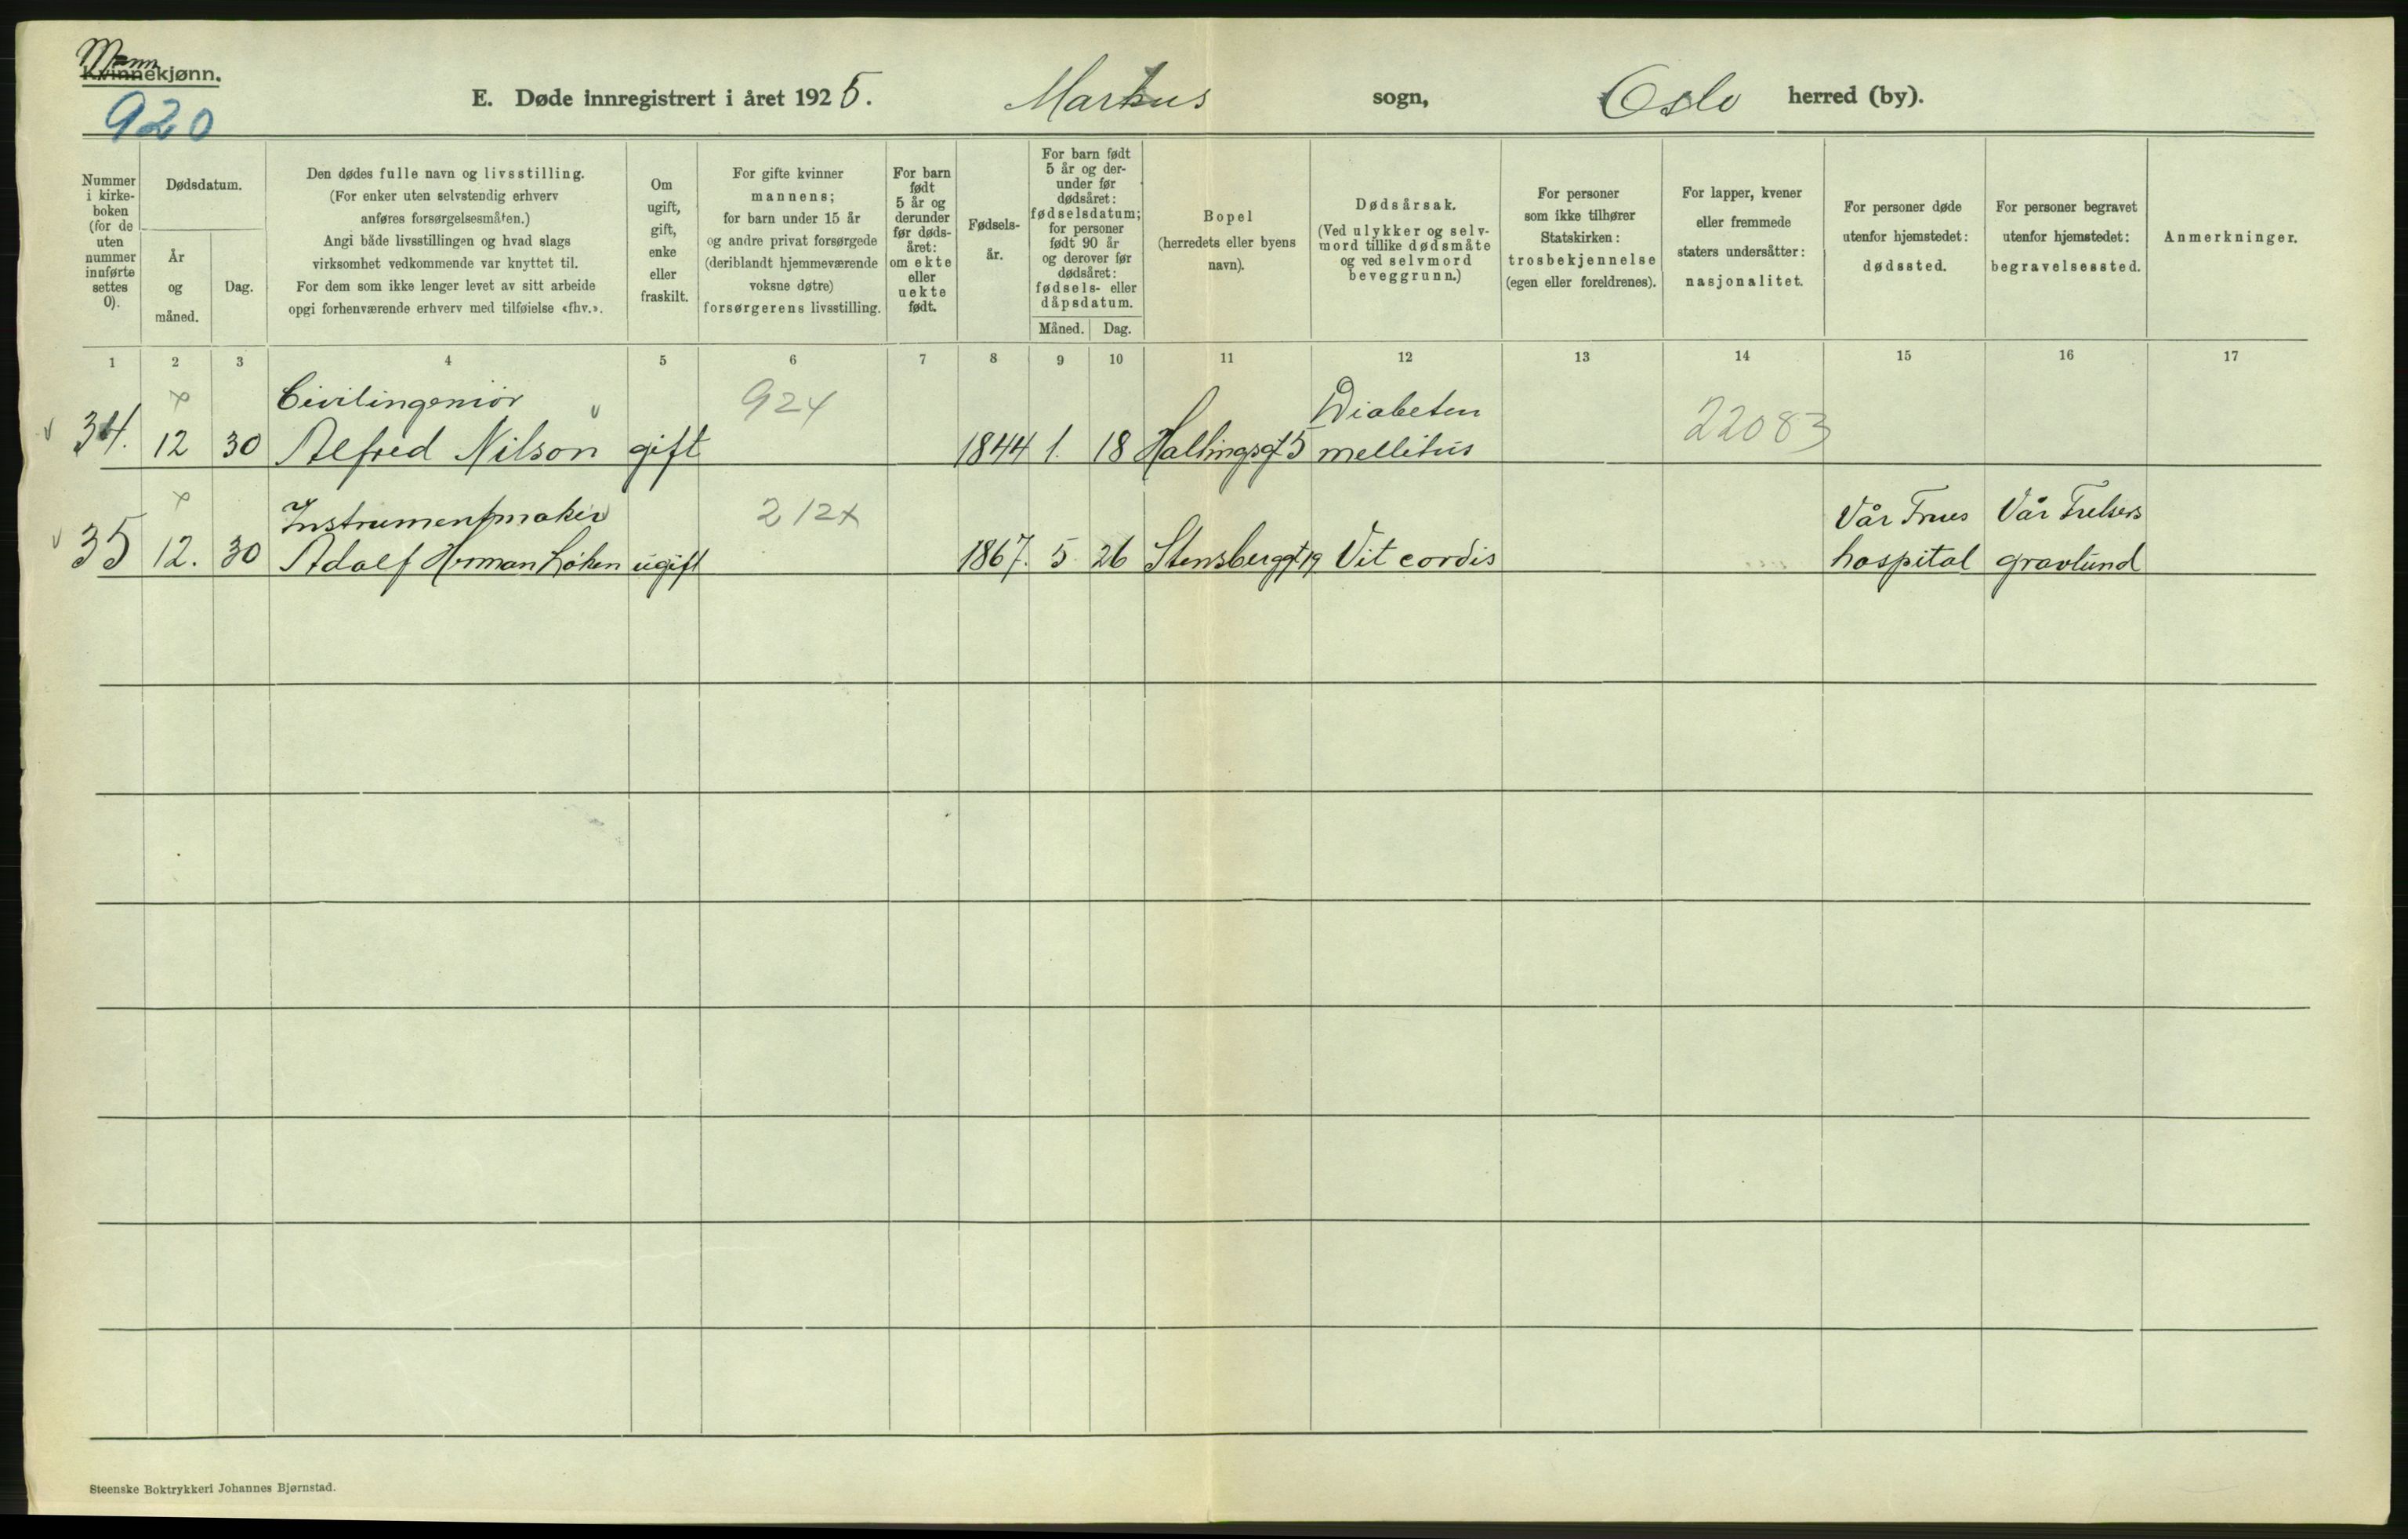 Mann
Kvinnekjønn.
920
E. Døde innregistrert i året 1925. Markus sogn, Oslo herred (by).
Nummer
i kirke-
boken
(for de
uten
nummer
innførte
settes
0).
Dødsdatum.
År
og
måned.
Dag.
Den dødes fulle navn og livsstilling.
(For enker uten selvstendig erhverv
anføres forsørgelsesmåten.)
Angi både livsstillingen og hvad slags
virksomhet vedkommende var knyttet til.
For dem som ikke lenger levet av sitt arbeide
opgi forhenværende erhverv med tilføielse «fhv.».
Om
ugift,
gift,
enke
eller
fraskilt.
For gifte kvinner
mannens;
for barn under 15 år
og andre privat forsørgede
(deriblandt hjemmeværende
voksne døtre)
forsørgerens livsstilling.
For barn
født
5 år og
derunder
før døds-
året:
om ekte
eller
uekte
født.
Fødsels-
år.
For barn født
5 år og der-
under før
dødsåret:
fødselsdatum;
for personer
født 90 år
og derover før
dødsåret:
fødsels- eller
dåpsdatum.
Måned. Dag.
Bopel
(herredets eller byens
navn).
Dødsårsak.
(Ved ulykker og selv-
mord tillike dødsmåte
og ved selvmord
beveggrunn.)
For personer
som ikke tilhører
Statskirken:
trosbekjennelse
(egen eller foreldrenes).
For lapper, kvener
eller fremmede
staters undersåtter:
nasjonalitet.
For personer døde
utenfor hjemstedet:
dødssted.
For personer begravet
utenfor hjemstedet:
begravelsessted.
Anmerkninger.
1 2 3 4 5 6 7 8 9 10 11 12 13 14 15 16 17
Civilingeniør 924 Diabeten 22083
34. 12 30 Alfred Nilson gift 1844 1. 18 Hallingsgt 5 mellitus
Instrumentmaker 212x Vår Frues Vår Frelsers
35 12. 30 Adolf Herman Løken ugift 1867. 5 26 Stensberggt 19 Vit cordis hospital gravlund
Steenske Boktrykkeri Johannes Bjørnstad.